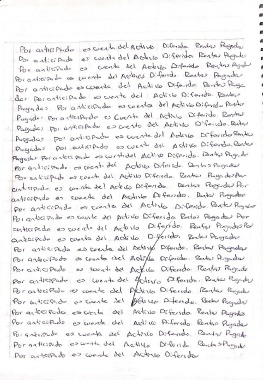 Por anticipado es cuenta del Activo Diferido. Rentas Pagadas
Por anticipado es cuenta del Activo Diferido. Rentas Pagadas
Por anticipado es cuenta del Activo Diferido. Rentas Pagadas
Por anticipado es cuenta del Activo Diferido Rentas Pagadas
Por anticipado es cuenta del Activo Diferido. Rentas Paga
das Por anticipado es cuenta del Activo Diferido Rentas
Pagadas Por anticipado es cuenta del Activo Diferido. Rentas
Pagadas Por anticipado es cuenta del Activo Diferido. Rentas
Pagadas Por anticipado es cuenta del Activo Diferido. Rentas
Pagadas Por anticipado es cuenta del Activo Diferido Rentas
Pagadas Por anticipado es cuenta del Activo Diferido. Rentas
Pagadas Por anticipado es cuenta del Activo Diferido. Rentas Pagadas
Por anticipado es cuenta del Activo Diferido Rentas Pagadas
Por anticipado es cuenta del Activo Diferido. Rentas Pagadas Por
anticipado es cuenta del Activo Diferido. Rentas Pagadas Por
anticipado es cuenta del Activo Diferido. Rentas Pagadas
Por anticipado es cuenta del Activo Diferido Rentas Pagadas Por
anticipado es cuenta del Activo Diferido. Rentas Pagadas Por
anticipado es cuenta del Activo Diferido. Rentas Pagadas
Por anticipado es cuenta del Activo Diferido. Rentas Pagadas
Por anticipado es cuenta del Activo Diferido. Rentas Pagadas
Por anticipado es cuenta del Activo Diferido. Rentas Pagadas
Por anticipado es cuenta del Activo Diferido. Rentas Pagadas
Por anticipado es cuenta del Activo Diferido. Rentas Pagadas
Por anticipado es cuenta del Activo Diferido. Rentas Pagadas
Por anticipado es cuenta del Activo Diferido. Rentas Pagadas
Por anticipado es cuenta del Activo Diferido. Rentas Pagadas
Por anticipado es cuenta del Activo Diferido